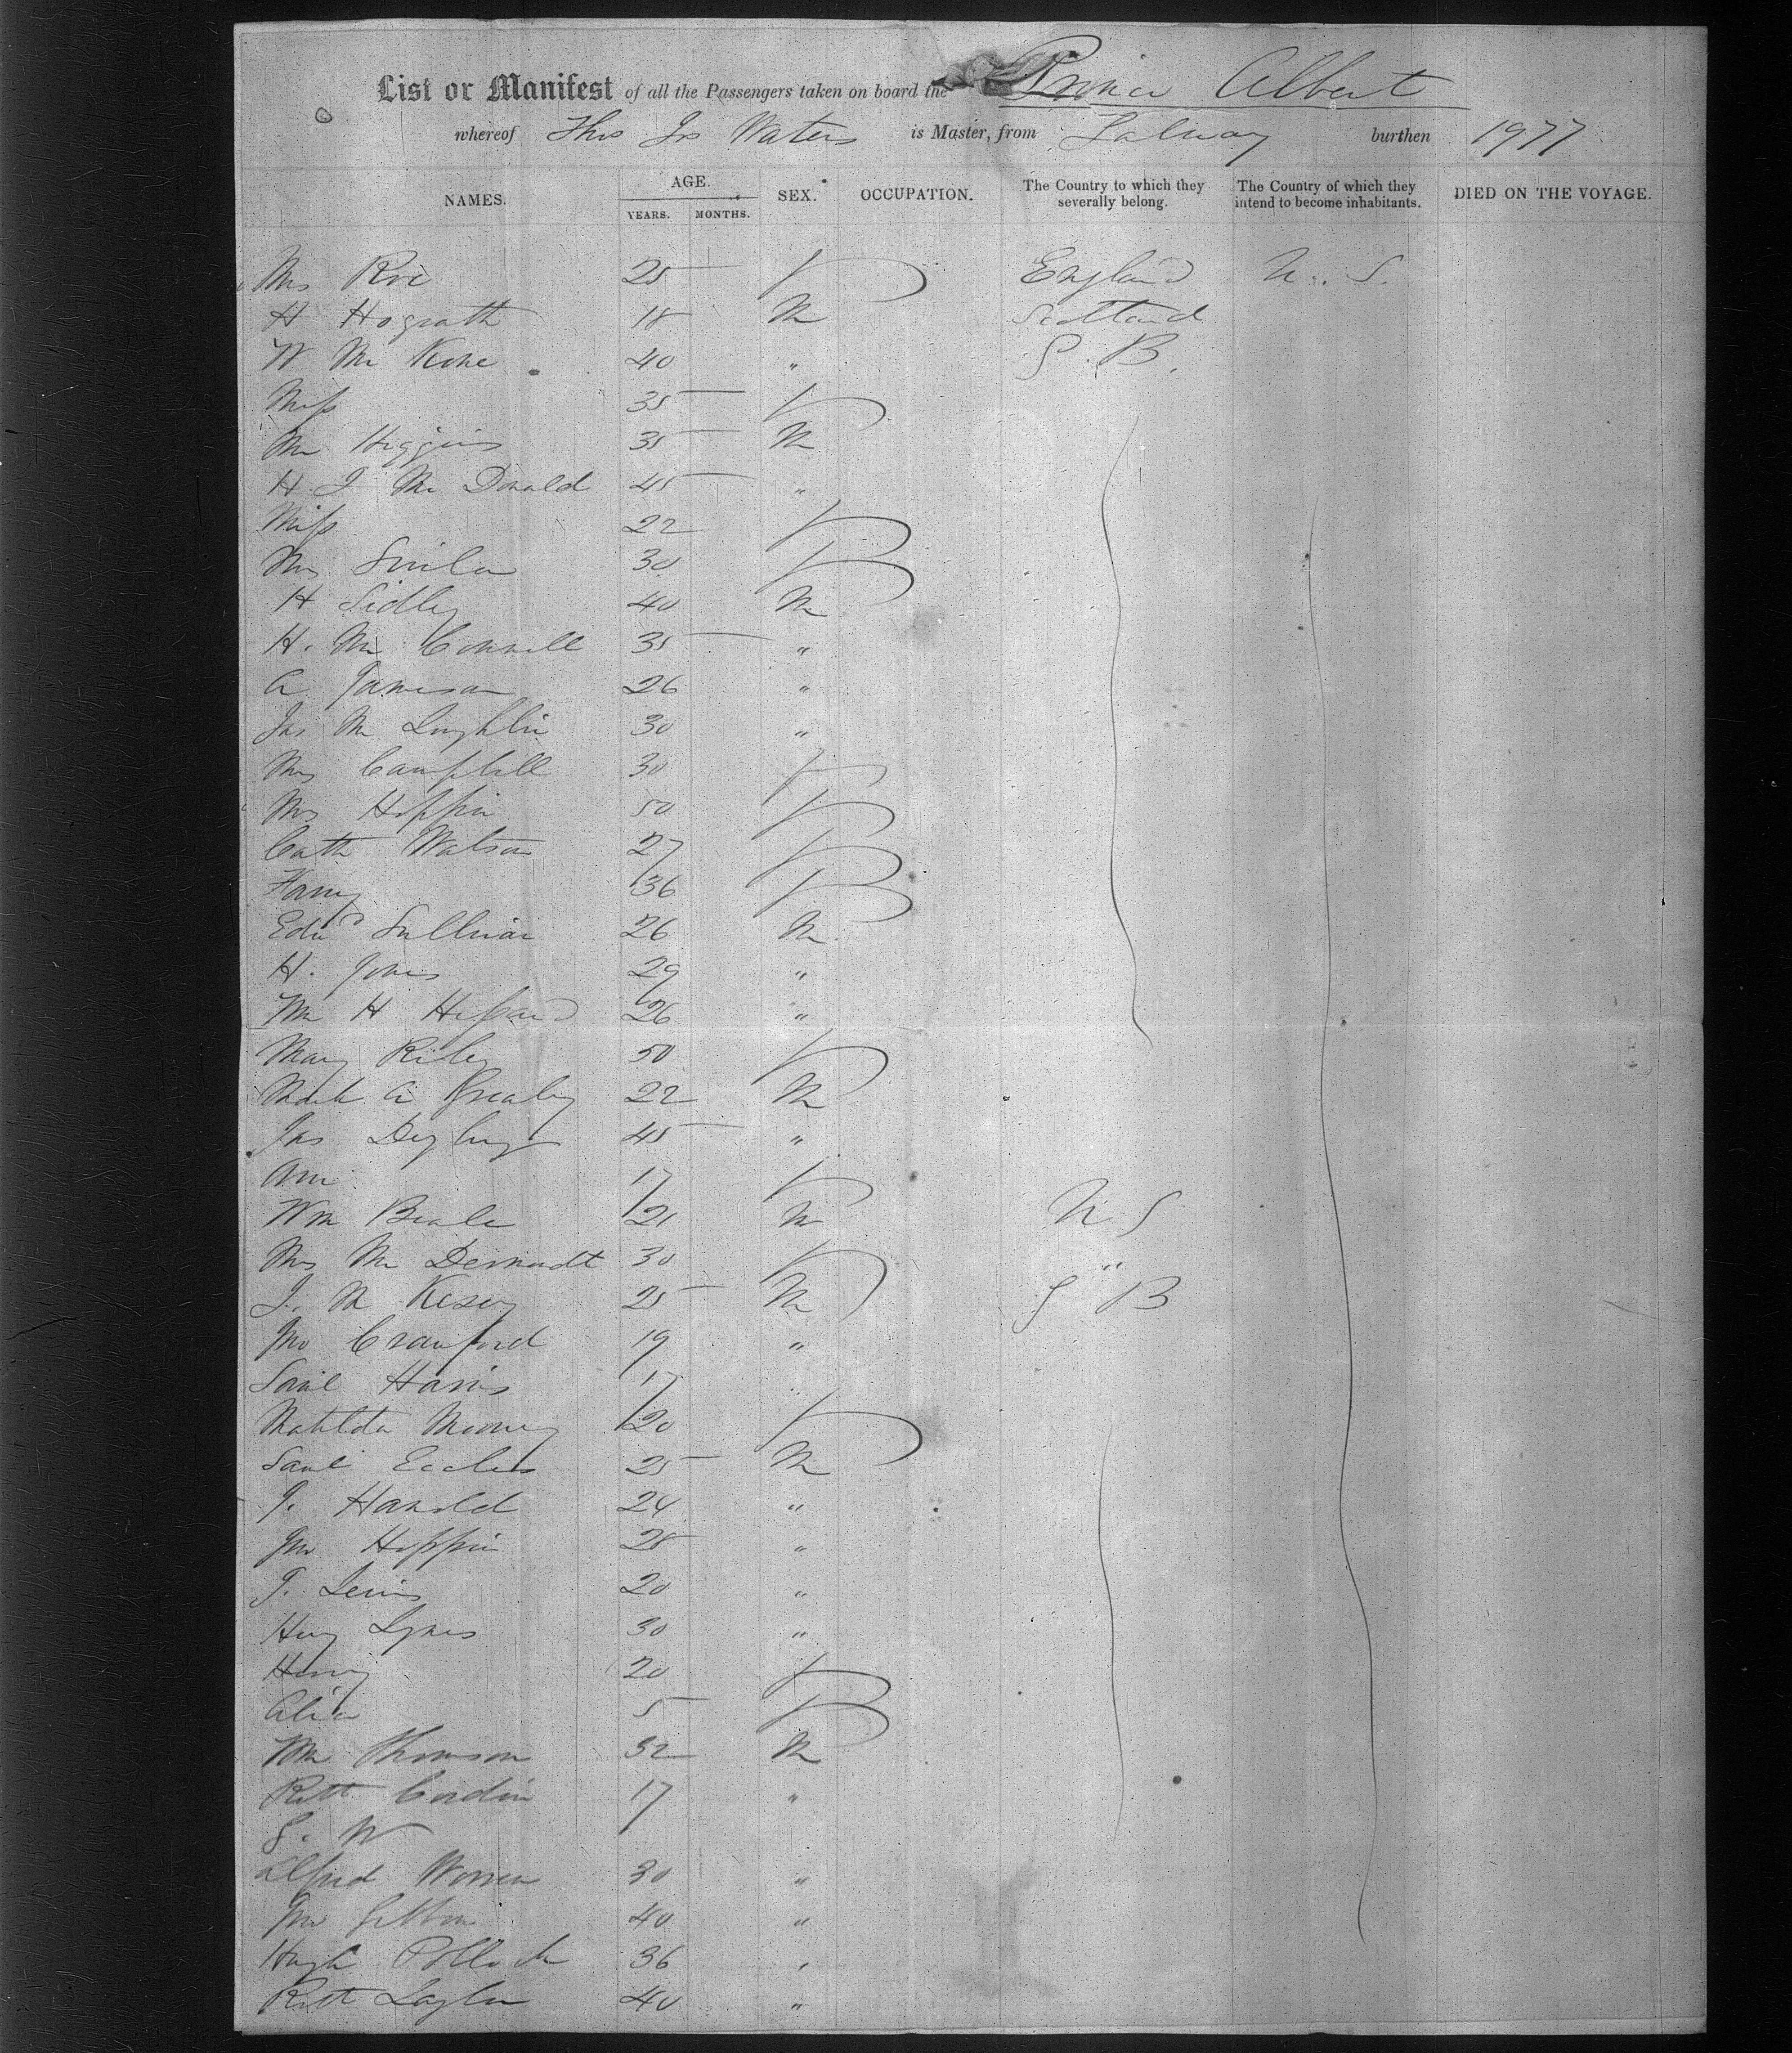 List or Manifest of all the Passengers taken on board the Prince Albert
whereof Thos Js Waters is Master, from Galway burthen 1977
NAMES. AGE. YEARS. MONTHS. SEX. OCCUPATION. The Country to which they severally belong. The Country of which they intend to become inhabitants. DIED ON THE VOYAGE.
Mrs Roe 25 F England U. S.
H Hograth 18 M Scotland
W Mc Kone 40 " G. B.
Miss 35 F
Mr Higgins 35 M
H. J Mc Donald 45 "
Miss 22 F
Mrs 30 F
H Sidley 40 M
H. Mc Connell 35 "
A Jameson 26 "
Jas Mc Loughlin 30 "
Mrs Campbell 30 F
Mrs Heffin 50 F
Cath Watson 27 F
Fanny 36 F
Edwd Sullivan 26 M
H. Jones 29 "
Wm H 26 "
Mary Riley 50 F
22 M
Jas 45 "
Ann 17 F
Wm Beale 21 M U S
Mrs Mc Dermodt 30 F "
J. M Kesey 25 M G B
Jno Crawford 19 "
Saml Harris 17 "
Matilda Mooney 20 F
Saml Eccles 25 M
T. Harold 24 "
Jno Heffin 28 "
T. Lewis 20 "
Heny Lynes 30 "
20 F
Alice 5 F
Wm Thomson 32 M
Robt 17 "
G. W
Alfred Warren 30 "
Jno Gibbon 40 "
Hugh Pollock 36 "
Robt Taylor 40 "